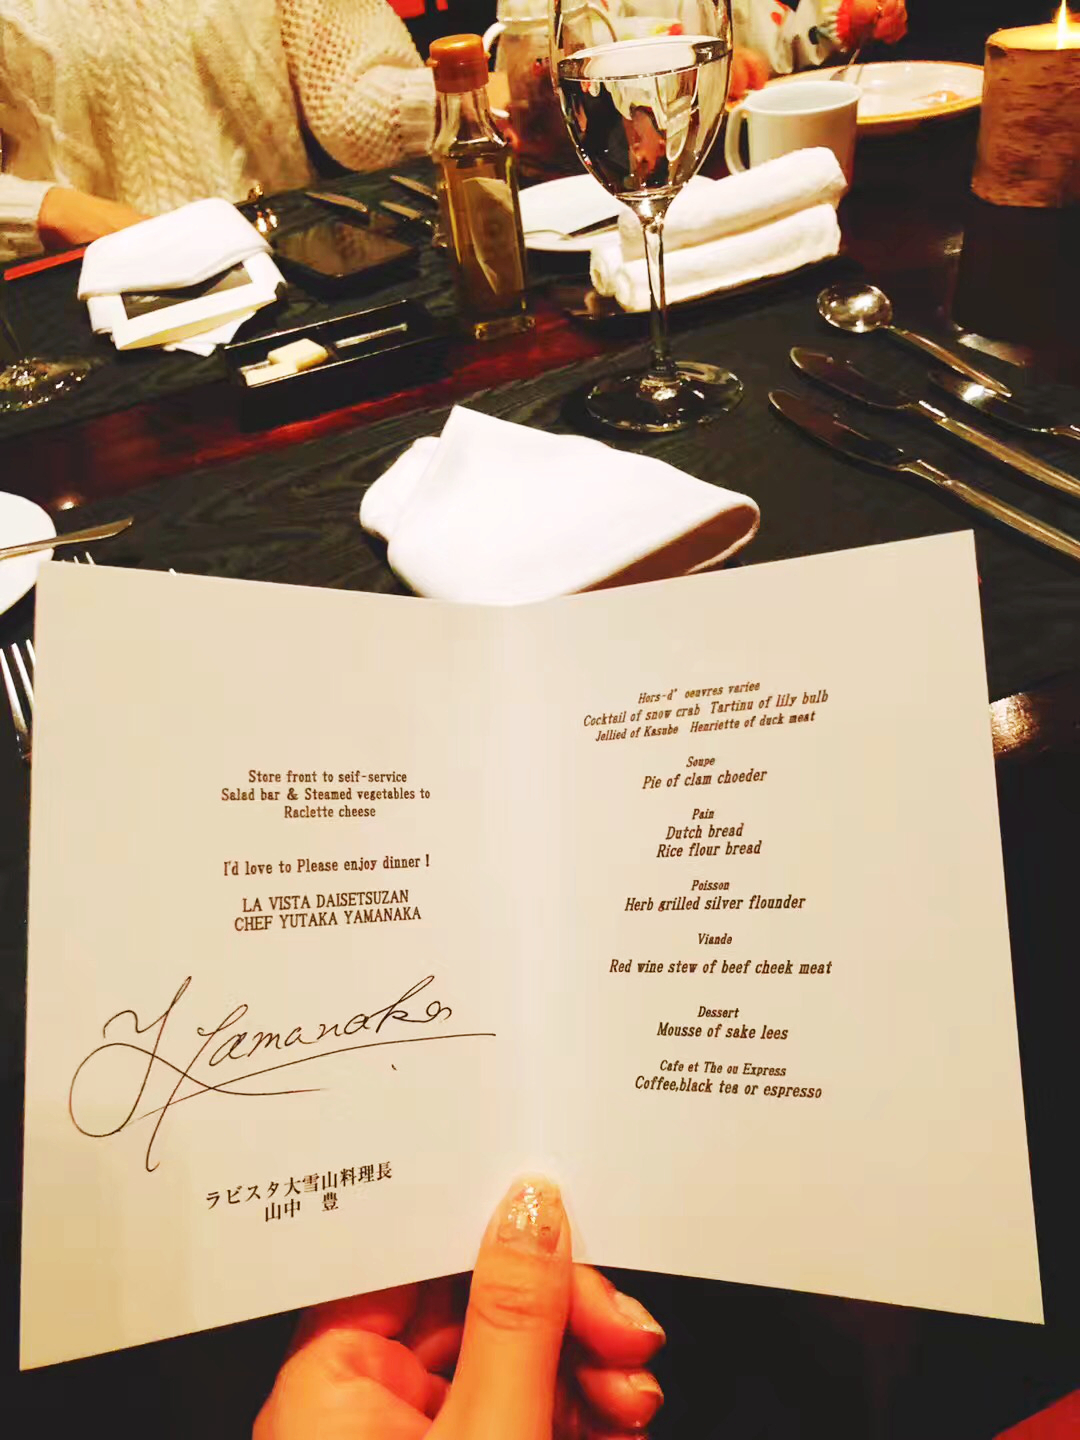 Store front to seif-service
Salad bar & Steamed vegetables to
Raclette cheese
I'd love to Please enjoy dinner !
LA VISTA DAISETSUZAN
CHEF YUTAKA YAMANAKA
Y Yamanaka
ラビスタ大雪山料理長
山中 豊
Hors-d' oeuvres variee
Cocktail of snow crab Tartinu of lily bulb
Jellied of Kasube Henriette of duck meat
Soupe
Pie of clam choeder
Pain
Dutch bread
Rice flour bread
Poisson
Herb grilled silver flounder
Viande
Red wine stew of beef cheek meat
Dessert
Mousse of sake lees
Cafe et The ou Express
Coffee,black tea or espresso